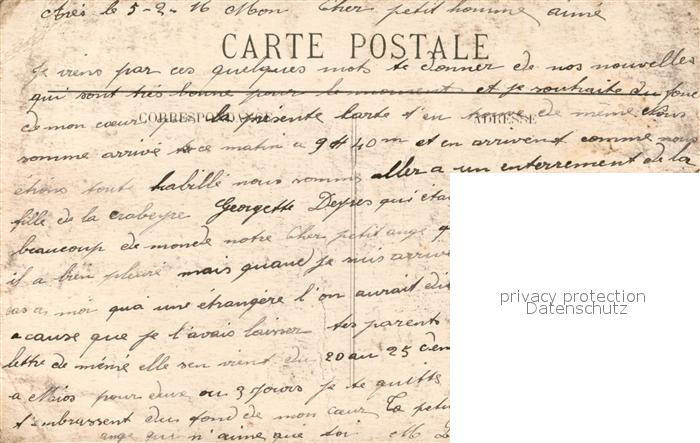 Arès le 5-2-16 Mon Cher petit homme aimé
CARTE POSTALE
Je viens par ces quelques mots te donner de nos nouvelles
qui sont très bonne pour le moment et je souhaite du fond
CORRESPONDANCE
ADRESSE
de mon cœur que la présente Carte t'en trouve de même. Nous
somme arrivé ce matin a 9H 40m et en arrivent comme nous
étions tout habillé nous somme aller a un enterrement de la
fille de la crabeyre Georgette Deyres qui étai
beaucoup de monde notre Cher petit ange q
il a bien pleuré mais quand je suis arrivé
pas a moi qua une étrangère l'on aurait di
a cause que je l'avais laisser tes parents
lettre de mémé elle s'en vient du 20 au 25 cem
a Mios pour deux ou 3 jours je te quitte
t'embrassent du fond de mon cœur Ta peti
ange qui n'aime que toi M
privacy protection
Datenschutz